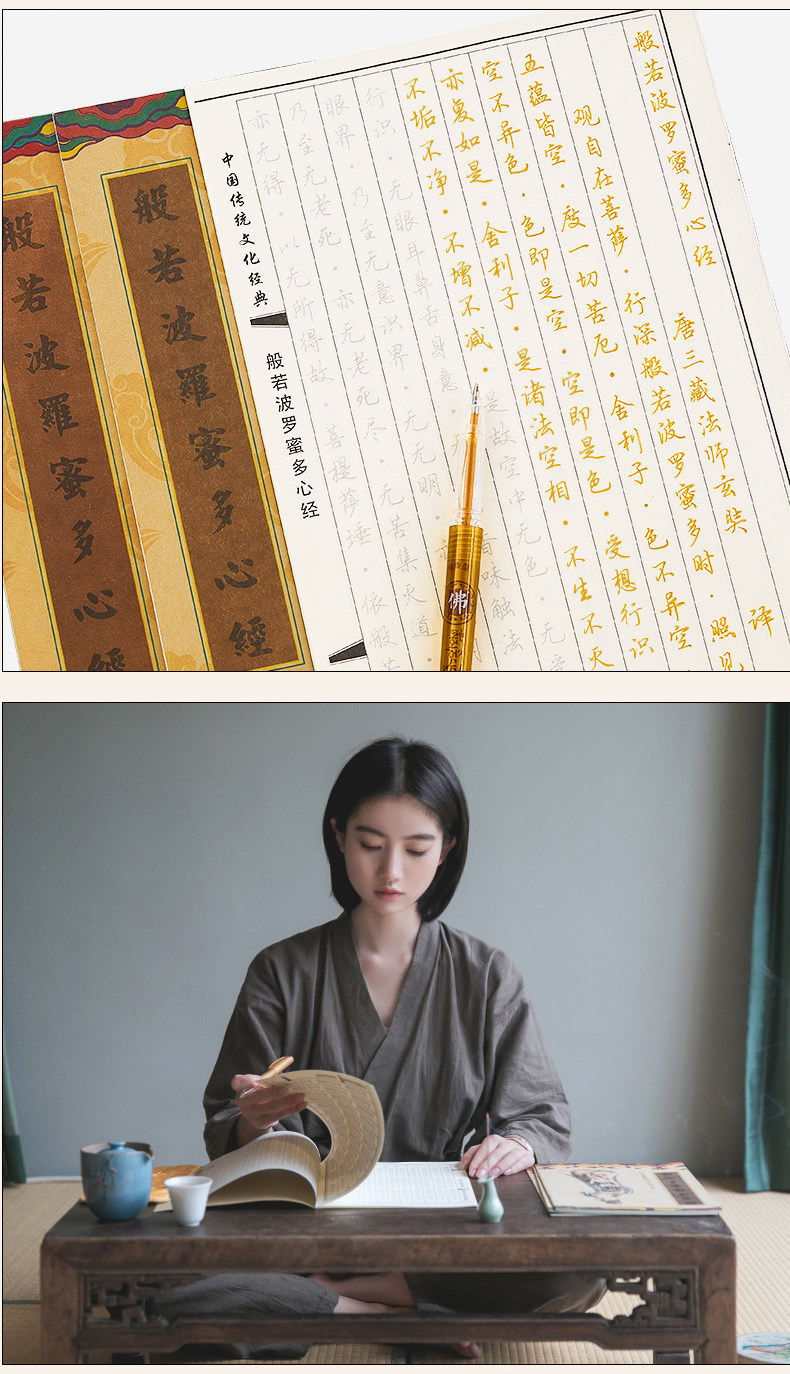 般若波罗蜜多心经
唐三藏法师玄奘 译
观自在菩萨·行深般若波罗蜜多时·照见
五蕴皆空·度一切苦厄·舍利子·色不异空
空不异色·色即是空·空即是色·受想行识
亦复如是·舍利子·是诸法空相·不生不灭
不垢不净·不增不减·是故空中无色·无受
行识·无眼耳鼻舌身意·无 香味触法
眼界·乃至无意识界·无无明·亦
乃至无老死·亦无老死尽·无苦集灭道·
亦无得·以无所得故·菩提萨埵·依般若
中国传统文化经典
般若波罗蜜多心经
般若波羅蜜多心經
般若波羅蜜多心經
佛